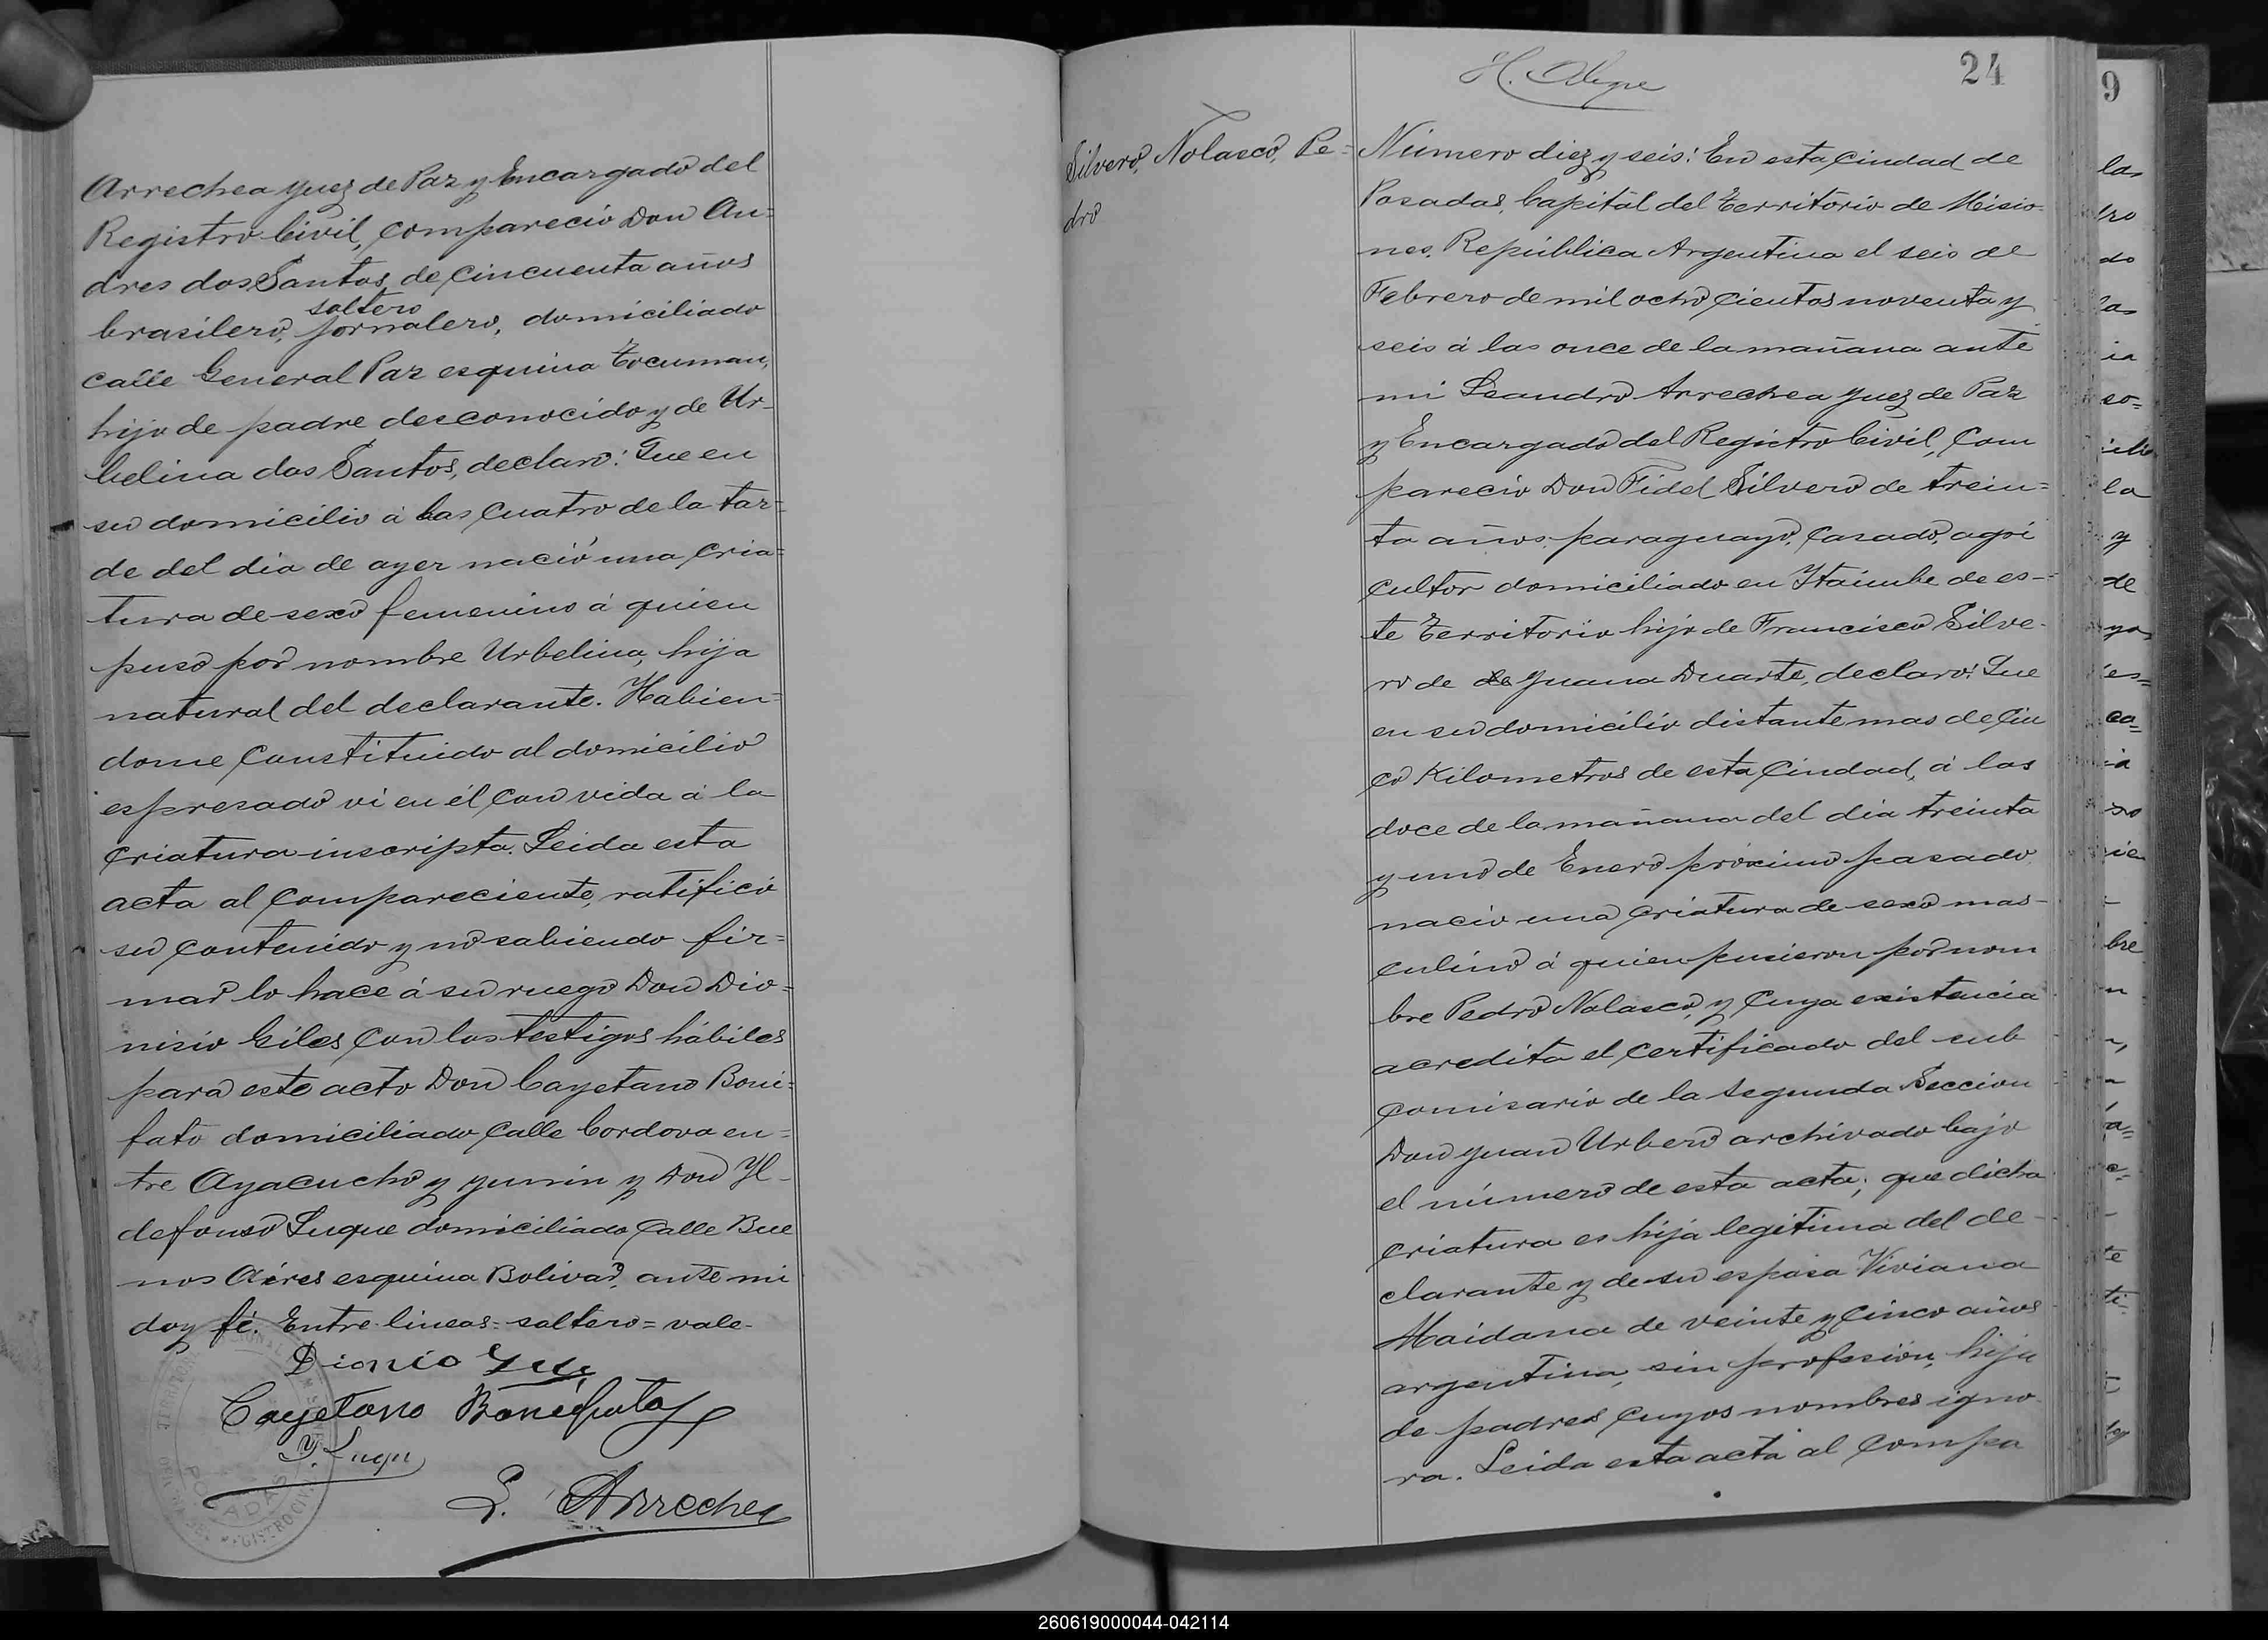 Arrechea Yuez de Paz y Encargado del
Registro Civil, compareció Don An=
dres dos Santos, de cincuenta años
soltero
brasilero, jornalero, domiciliado
calle General Paz esquina Tucuman,
hijo de padre desconocido y de Ur-
belina dos Santos, declaró: Que en
su domicilio á las cuatro de la tar=
de del dia de ayer nació una cria=
tura de sexo femenino á quien
puso por nombre Urbelina, hija
natural del declarante. Habien=
dome constituido al domicilio
espresado vi en él con vida á la
criatura inscripta. Leida esta
acta al compareciente, ratificó
su contenido y no sabiendo fir=
mar lo hace á su ruego Don Dio=
nisio Giles con los testigos hábiles
para este acto Don Cayetano Boni=
fato domiciliado calle Cordova en=
tre Ayacucho y Yunin y Don Yl-
defonso Luque domiciliado calle Bue
nos Aires esquina Bolivar, ante mi
doy fé. Entre lineas=soltero=vale-
Cayetano Bonifato
L. Arrechea
POSADAS
24
Silvero, Nolasco, Pe=
dro
Número diez y seis: En esta ciudad de
Posadas, Capital del Territorio de Misio-
nes, República Argentina el seis de
Febrero de mil ocho cientos noventa y
seis á las once de la mañana ante
mi Leandro Arrechea Yuez de Paz
y Encargado del Registro Civil, com
pareció Don Fidel Silvero de trein=
ta años, paraguayo, casado, agri
cultor domiciliado en Itaimbe de es-
te Territorio hijo de Francisco Silve-
ro de Yuana Duarte, declaró: Que
en su domicilio distante mas de cin
co Kilometros de esta ciudad, á las
doce de la mañana del dia treinta
y uno de Enero próximo pasado
nació una criatura de sexo mas-
culino á quien pusieron por nom
bre Pedro Nolasco, y cuya existencia
acredita el certificado del sub
comisario de la segunda Seccion
Don Yuan Urbero archivado bajo
el número de esta acta; que dicha
criatura es hija legitima del de-
clarante y de su esposa Viviana
Maidana de veinte y cinco años
argentina, sin profesión, hija
de padres cuyos nombres igno-
ra. Leida esta acta al compa
9
las
tro
do
las
ia
so=
la
y
de
es=
co=
bre
te
ti-
260619000044-042114